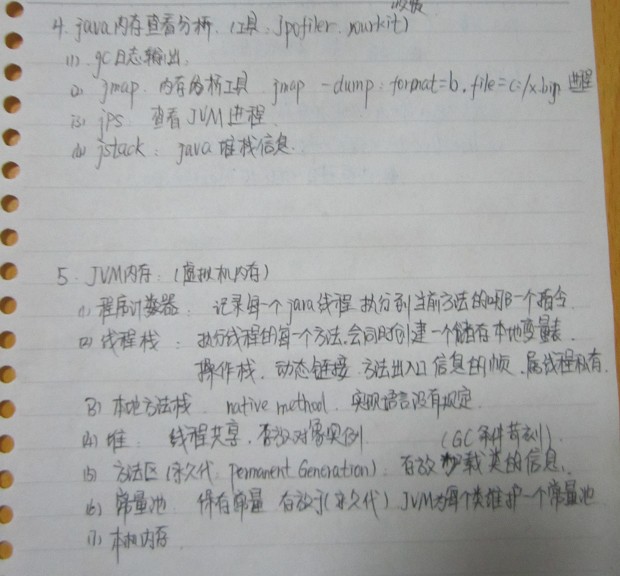 4. java内存查看分析.（工具: jpofiler. yourkit）
(1) gc日志输出.
(2) jmap. 内存分析工具 jmap -dump: format=b, file=c:/x.bin 进程
(3) jps 查看JVM进程.
(4) jstack: java堆栈信息.
5. JVM内存:（虚拟机内存）
(1) 程序计数器: 记录每一个java线程执行到当前方法的哪一个指令.
(2) 线程栈: 执行线程的每一个方法,会同时创建一个储存本地变量表.
操作栈. 动态链接. 方法出入口信息的帧. 属线程私有.
(3) 本地方法栈. native method. 实现语言没有规定.
(4) 堆. 线程共享. 存放对象实例. (GC
(5) 方法区(永久代. Permanent Generation). 存放加载类的信息.
(6) 常量池. 保存常量 存放于(永久代) JVM为每个类维护一个常量池
(7) 本机内存